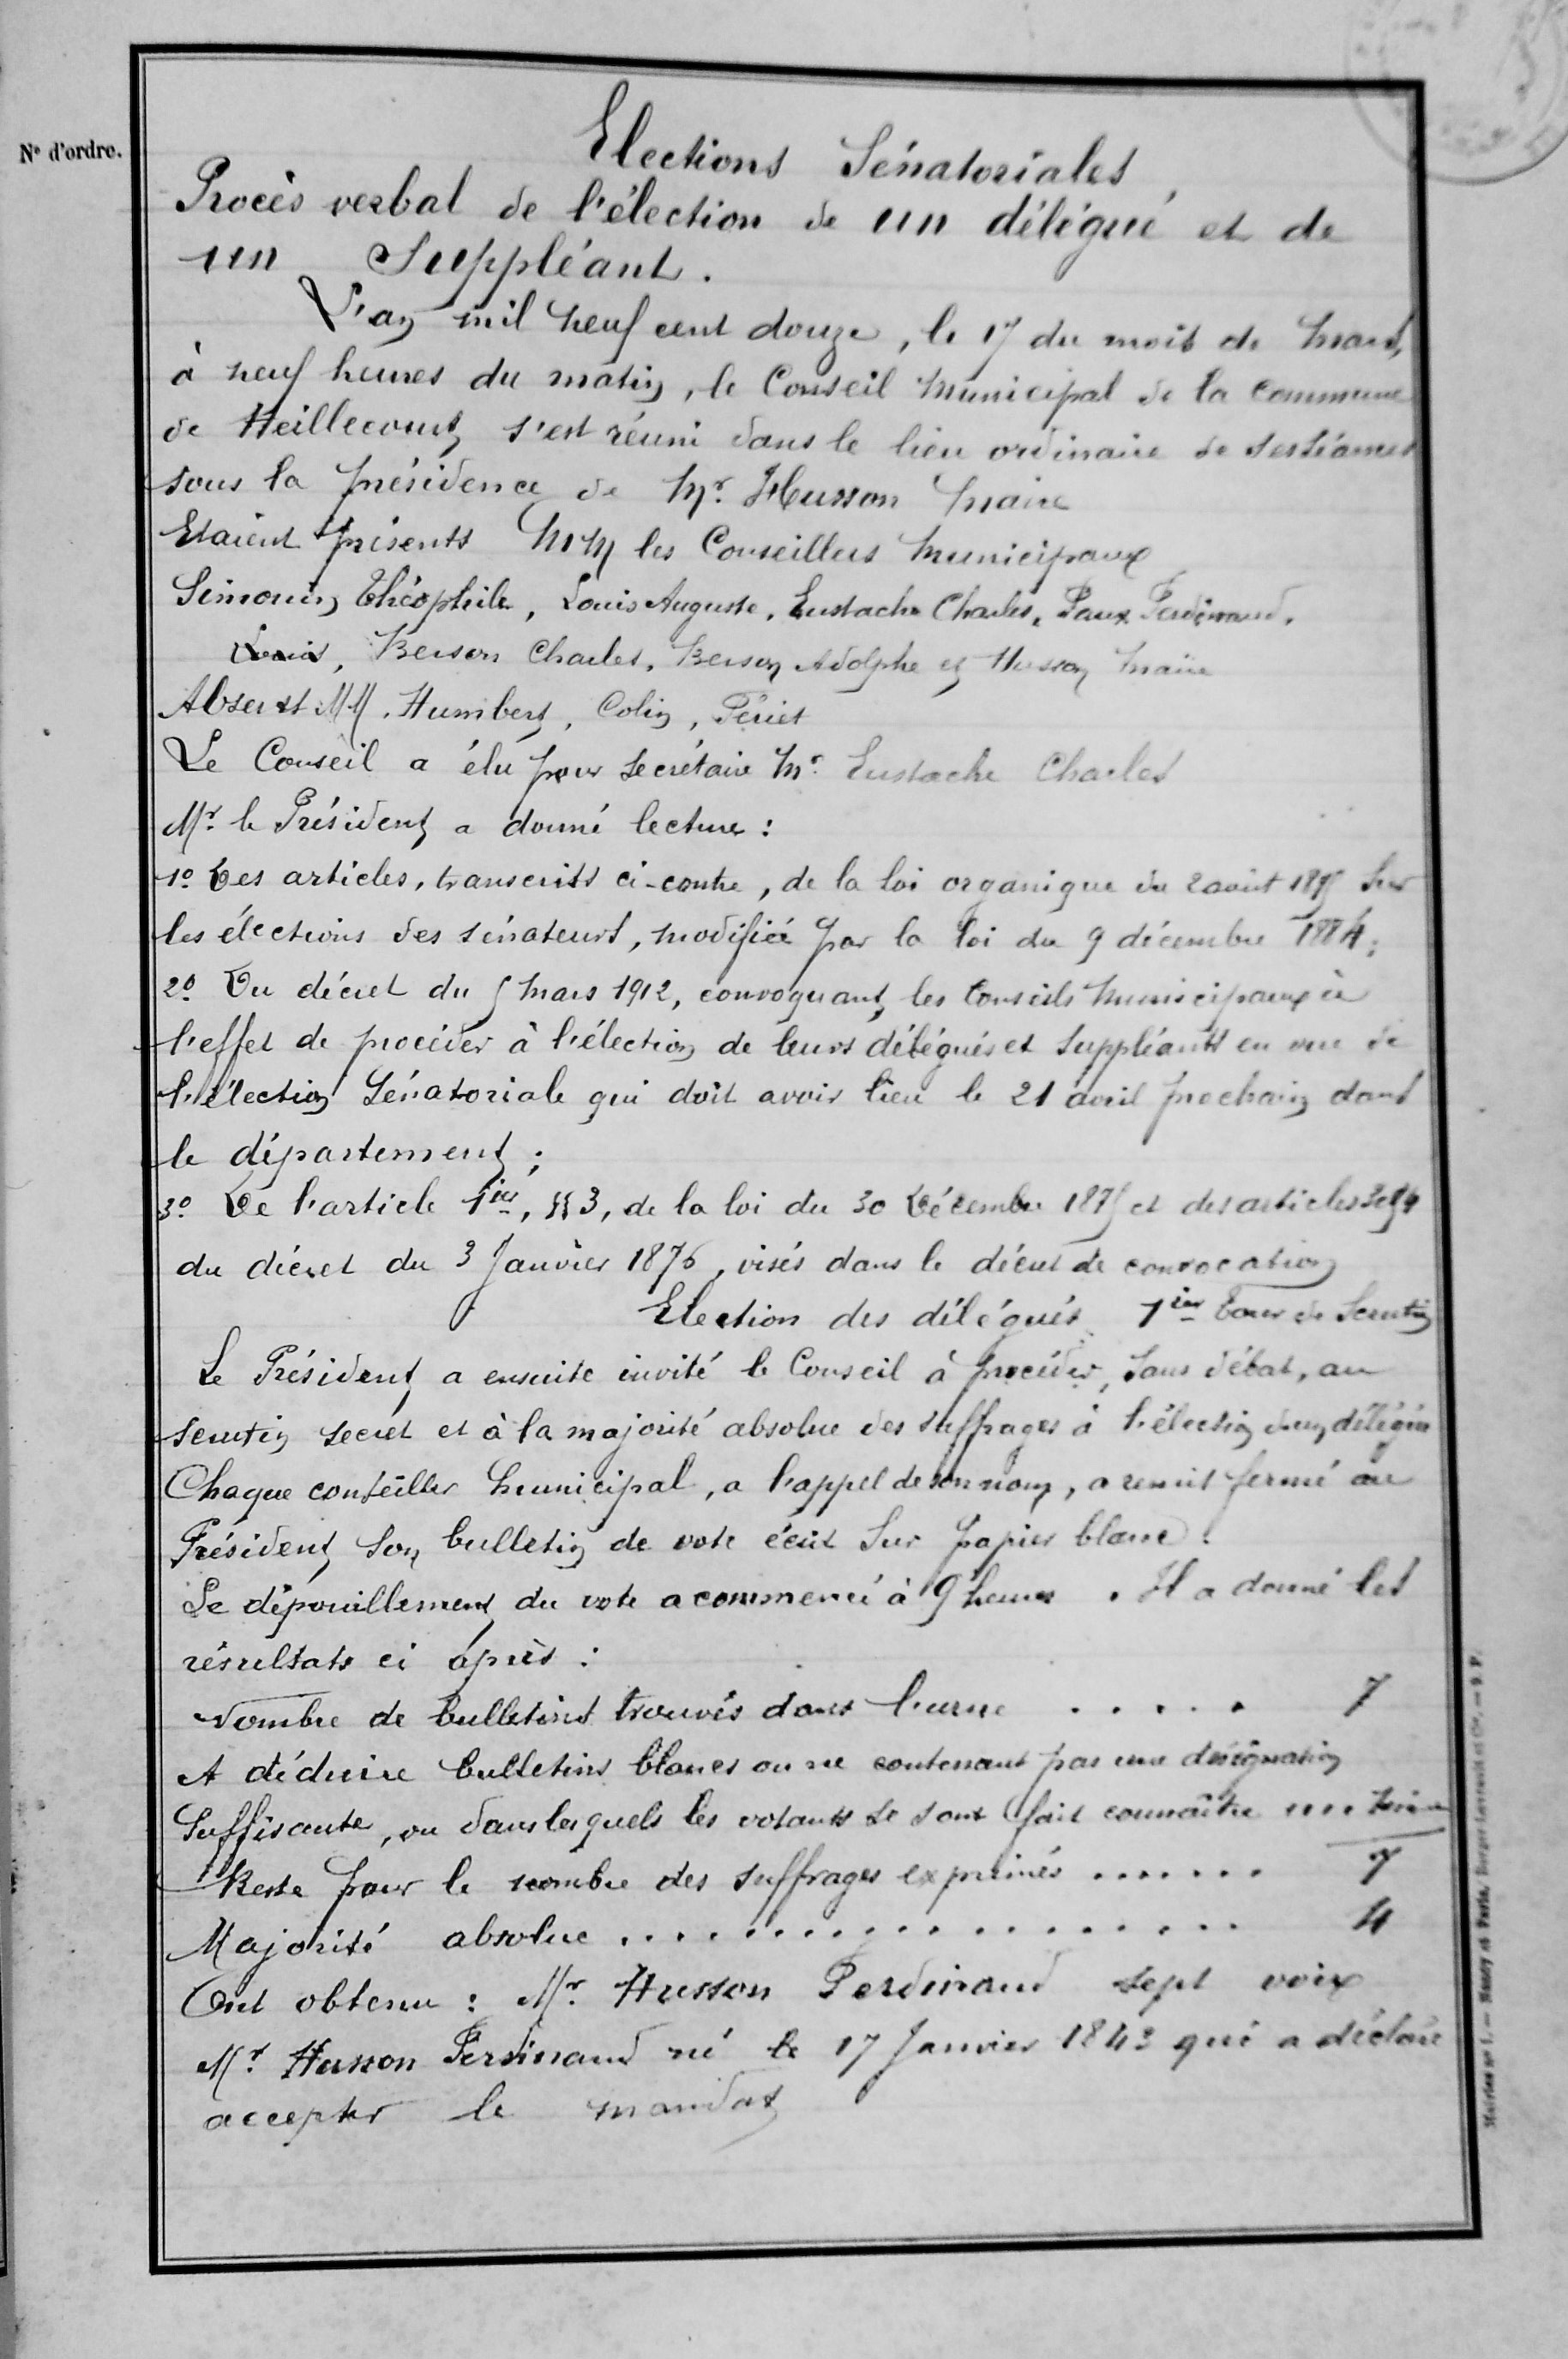 N° d'ordre.
Elections Sénatoriales
Procès verbal de l'élection de un délégué et de
un Suppléant.
L'an mil neuf cent douze, le 17 du mois de Mars,
à neuf heures du matin, le Conseil Municipal de la Commune
de Heillecourt s'est réuni dans le lieu ordinaire de ses séances
sous la présidence de Mr. Husson Maire
Etaient présents MM les Conseillers Municipaux
Simonin Théophile, Louis Auguste, Eustache Charles, Paux Ferdinand,
Louis, Berson Charles, Berson Adolphe et Husson Maire
Absents MM. Humbert, Colin, Périet
Le Conseil a élu pour Secrétaire Mr. Eustache Charles
Mr. le Président a donné lecture :
1° Des articles, transcrits ci-contre, de la loi organique du 2 août 1875 sur
les élections des sénateurs, modifiée par la loi du 9 décembre 1884;
2° Du décret du 5 Mars 1912, convoquant les Conseils Municipaux à
l'effet de procéder à l'élection de leurs délégués et Suppléants en vue de
l'élection Sénatoriale qui doit avoir lieu le 21 avril prochain dans
le département;
3° De l'article 1ier, §§ 3, de la loi du 30 Décembre 1875 et des articles 3 et 4
du décret du 3 Janvier 1876, visés dans le décret de convocation
Election des délégués. 1ier Tour de Scrutin
Le Président a ensuite invité le Conseil à procéder, sans débat, au
scrutin secret et à la majorité absolue des suffrages à l'élection d'un délégué
Chaque conseiller Municipal, a l'appel de son nom, a remis fermé au
Président son bulletin de vote écrit sur papier blanc.
Le dépouillement du vote a commencé à 9 heures . Il a donné les
résultats ci après :
Nombre de bulletins trouvés dans l'urne . . . . . 7
A déduire bulletins blancs ou ne contenant pas une désignation
Suffisante, ou dans lesquels les votants se sont fait connaître ....
Reste pour le nombre des suffrages exprimés ....... 7
Majorité absolue .................. 4
Ont obtenu : Mr. Husson Ferdinand sept voix
Mr. Husson Ferdinand né le 17 Janvier 1843 qui a déclaré
accepter le mandat